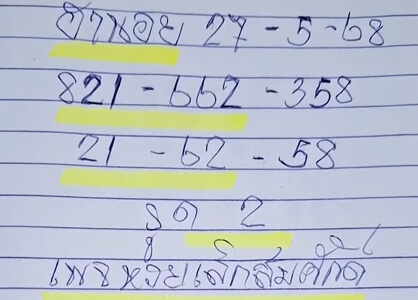 ฮานอย 27-5-68
821-662-358
21-62-58
รูด 2
เพจหวยเล็กสมศักดิ์